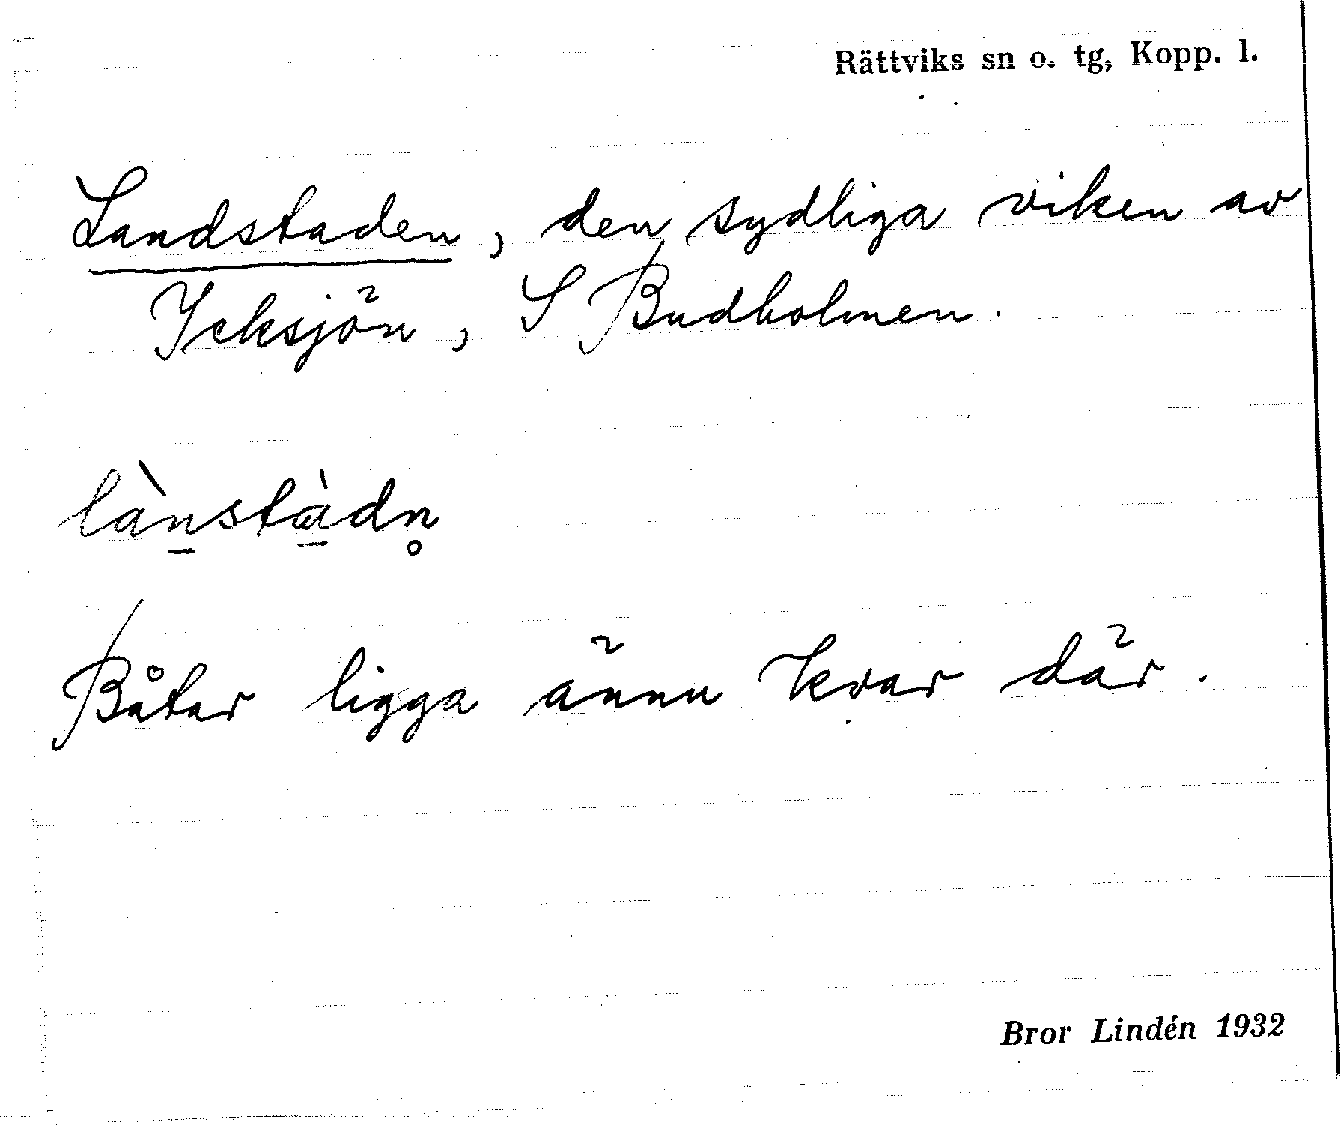 Rättviks sn o. tg, Kopp. l.
Landstaden, den sydliga viken av
Ycksjön, S Budholmen.
lànstàdn̥
Båtar ligga ännu kvar där.
Bror Lindén 1932